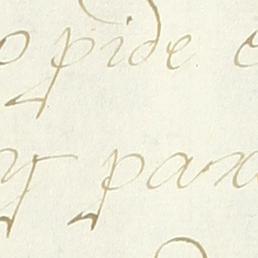 o pide e
y para